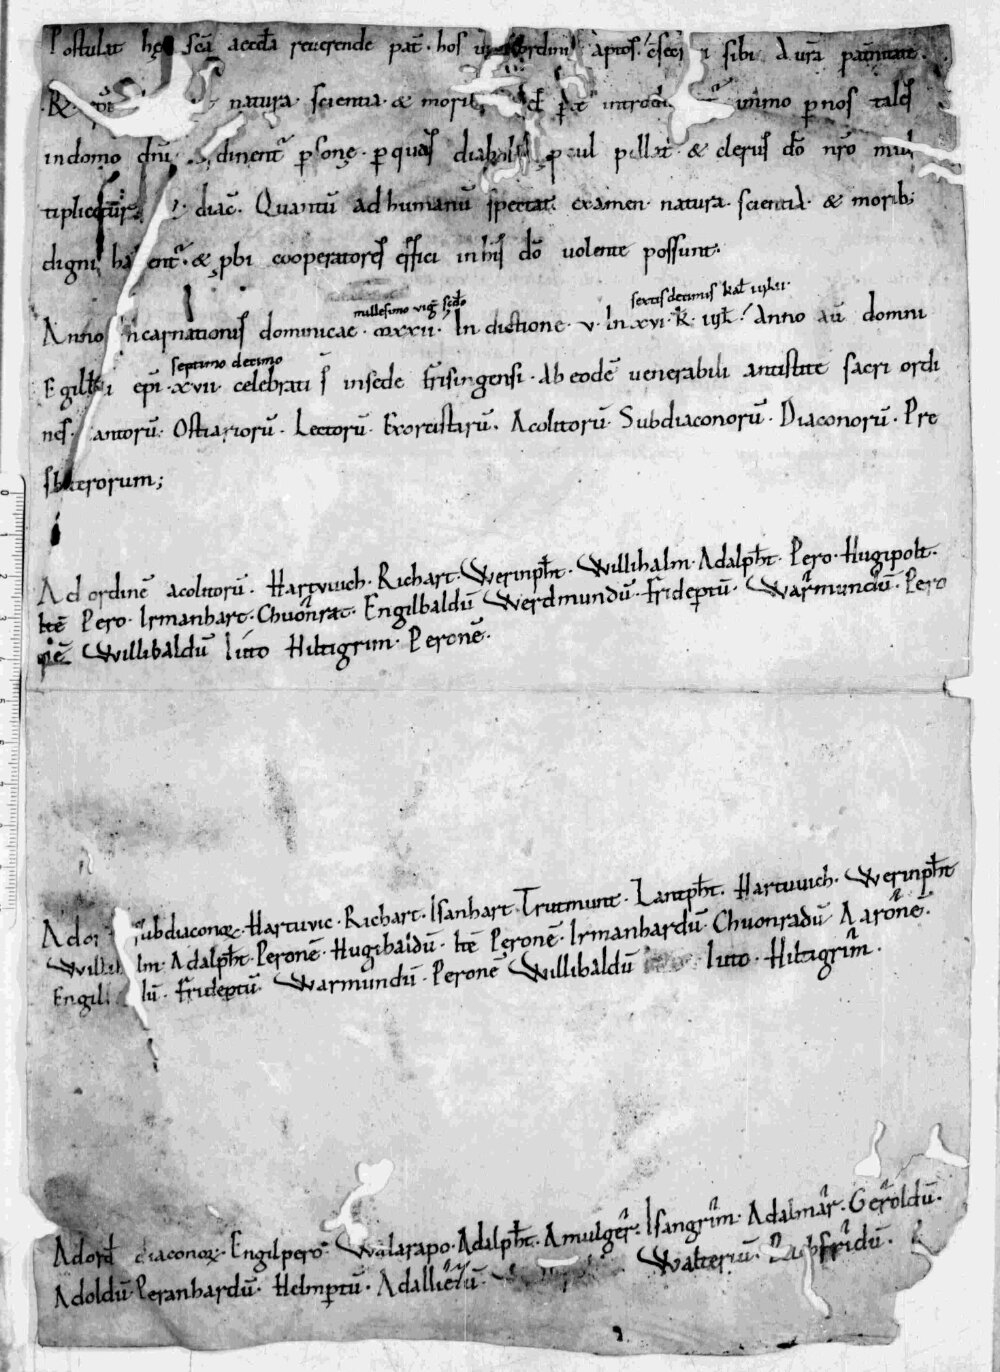 Postulat hęc scā aeccƚa reuerende pat̄ · hos ordini aptos · sibi A urā pat̄nitate ·
R̵ · natura · scientia · & morib; introdu immo p̱ nos tales
in domo dn̄i · dinent᷑ p̱sonę · p̱ quas diabolus p̱cul pillat᷑ · & clerus dō nr̄o mul
tiplicetur · diac̄ · Quantū ad humanū spectat · examen · natura · scientia · & morib;
digni habent᷑ · & p̱bi cooperatores effici in his dō uolente possunt ·
millesimo viḡ scd̄o sextusdecimus kaƚ
Anno incarnationis dominicae · mxxii · Indictione · v · In xvi · k̄ · Anno aū domni
septimo decimo
Egilberti ep̄i · xvii · celebrati s̄ in sede frisingensi · Ab eodē uenerabili antistite sacri ordi
nes · cantorū · Ostiariorū · Lectorū · Exorcistarū · Acolitorū · Subdiaconorū · Diaconorū · Pre
sbiterorum;
Ad ordinē acolitorū · Hartvuich · Richart · Werinpħt · Willihalm · Adalpħt · Pero · Hugipolt ·
Itē Pero · Irmanhart · Chuonrat · Engilbaldū Werdmundū · Frideptū · Warmundū · Pero
nē Willibaldū Iitto Hiltigrim · Peronē ·
Ad or subdiaconoꝝ · Hartuvic · Richart · Isanhart · Trutmunt · Lantpħt · Hartuvich · Werinpħt
Willihalm · Adalpħt · Peronē · Hugibaldū · Itē Peronē · Irmanhardū · Chuonradū Aaronē ·
Engilbaldū · Frideptū · Warmundū · Peronē Willibaldū Iitto · Hiltigrim̄ ·
Ad ord̄ diaconoꝝ · Engilpero · Walarapo · Adalpħt · Amulger̄ · Isangrim̄ · Adalmar̄ · Geroldū ·
Adoldū · Peranhardū · Helmptū · Adalliedū Walteriū · Rachfridū ·